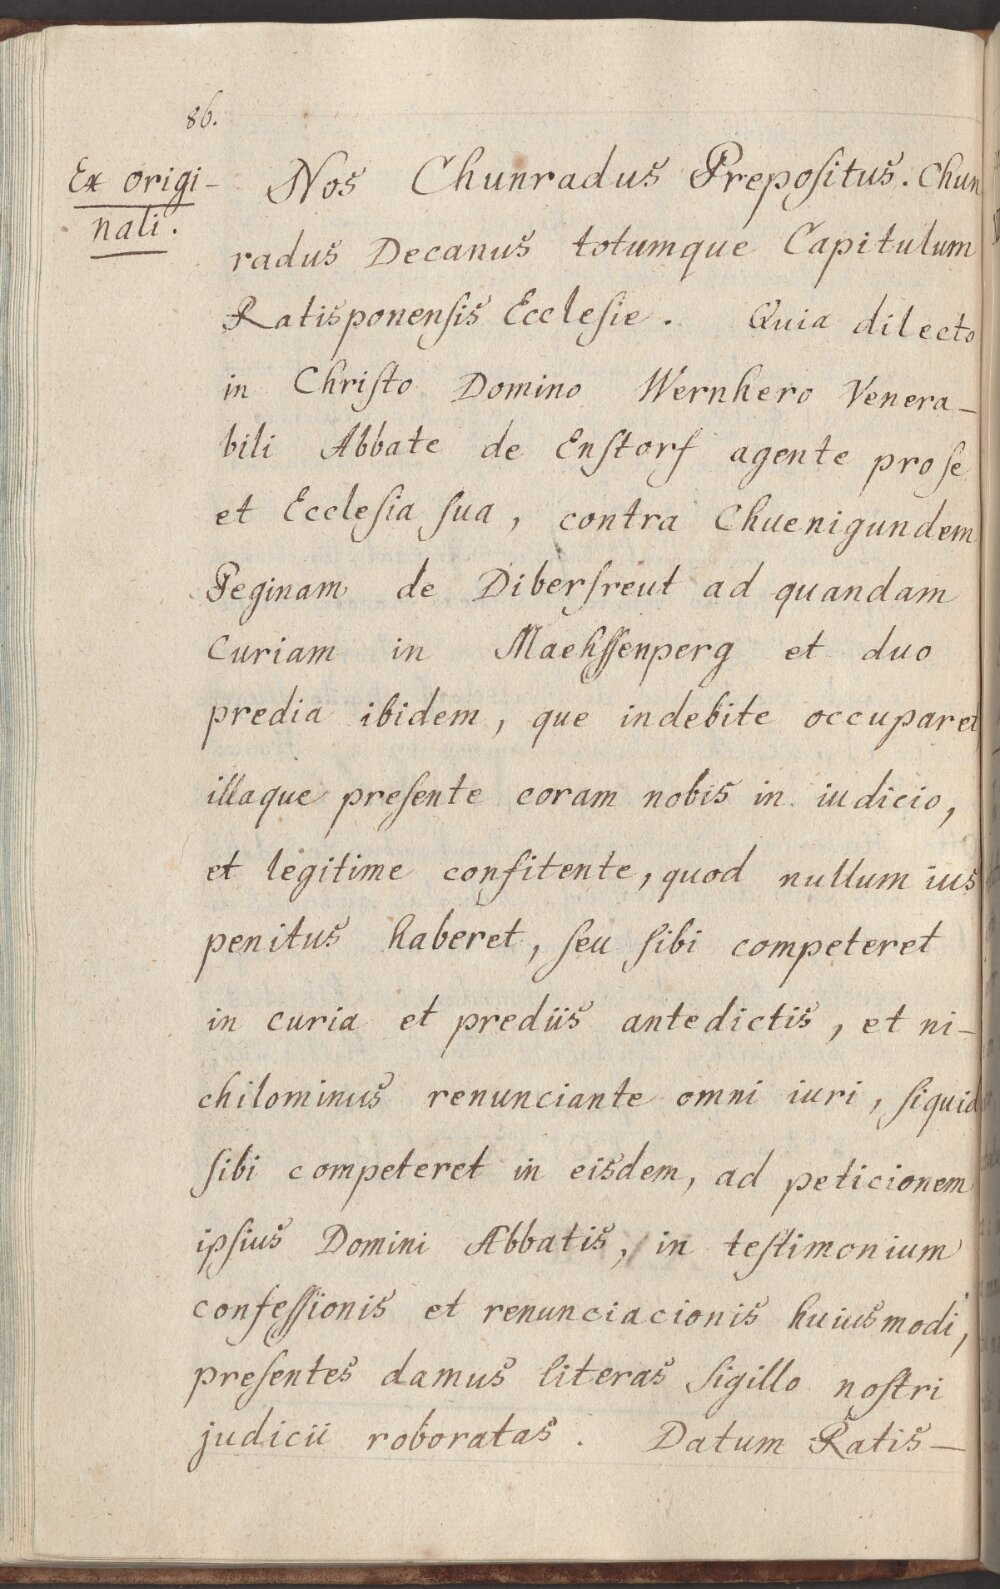 86.
Ex origi-
nali.
Nos Chunradus Prepoſitus. Chun
radus Decanus totumque Capitulum
Ratisponenſis Eccleſie. Quia dilecto
in Chriſto Domino Wernhero Venera-
bili Abbate de Enſtorf agente pro ſe
et Eccleſia ſua, contra Chuenigundem
Peginam de Diberſreut ad quandam
Curiam in Maehſſenperg et duo
predia ibidem, que indebite occuparet
illaque preſente coram nobis in iudicio,
et legitime confitente, quod nullum ius
penitus haberet, ſeu ſibi competeret
in curia et prediis antedictis, et ni-
chilominus renunciante omni iuri, ſiquid
ſibi competeret in eisdem, ad peticionem
ipſius Domini Abbatis, in teſtimonium
confeſſionis et renunciacionis huiusmodi,
preſentes damus literas ſigillo noſtri
judicii roboratas. Datum Ratis-